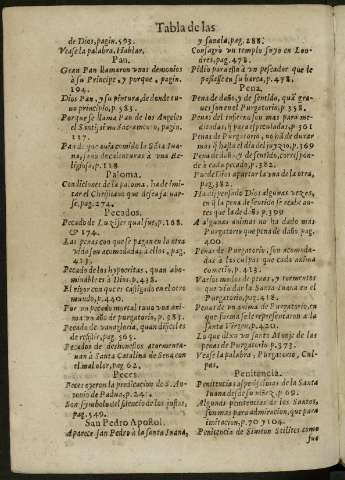 Tabla de las
de Dios, pagin. 593.
Vease la palabra, Hablar,
Pan.
Gran Pan llamaron unos demonios
a su Principe, y porque, pagin.
104.
Dios Pan, y su pintura, de donde tu-
uo principio, p. 583.
Porque se llama Pan de los Angeles
el Santissimo Sacramento, pagin.
127
Pan de que auia comido la Santa Iua-
na, sana de calenturas à una Re-
ligiosa, p. 118
Paloma.
Condiciones de la paloma, ha de imi-
tar el Christiano que dessea saluar-
se, pag. 274.
Pecados.
Pecado de Luzifer qual fue, p. 168.
& 174.
Las penas con que se pagan en la otra
vida son acomodadas à ellos, pag.
423.
Pecado de los hypocritas, quan abo-
minable es à Dios, p. 438.
El rigor con que es castigado en el otro
mundo, p. 440.
Por un pecado mortal tuuo una ani-
ma un año de purgatorio, p. 383.
Pecado de vanagloria, quan dificil es
de resistir, pag. 365.
Pecados de deshonestos atormenta-
uan à Santa Catalina de Sena con
el mal olor, pag 62.
Peces
Peces oyeron la predicacion de S. An-
tonio de Padua, p. 24.
Son symbolo del silencio de los justos,
pag. 549.
San Pedro Apostol.
Aparece san Pedro à la santa Iuana,
y sanala, pag. 288.
Consagrò un templo suyo en Lon-
dres, pag. 478.
Pidio passasse a un pescador que le
passasse en su barca, p. 478.
Pena.
Penas de daño, y de sentido, quã gra-
ues son en el Purgatorio, p. 385.
Penas del infierno son mas para me-
ditadas, y para explicadas, p 301
Penas de Purgatorio, no hà de durar
mas q̃ hasta el dia del juyzio, p. 369
Penas de daño, y de sentido, correspon-
de à cada pecado, p. 382.
Puede Dios apartar la una de la otra,
pag. 382.
Dispensando Dios algunas vezes,
en q̃ la pena de sentido se acabe an-
tes que la de daño p. 399
A algunas animas no ha dado mas
Purgatorio que pena de daño pag.
400
Penas de Purgatorio, son acomoda-
das à las culpas que cada anima
cometio, p. 413.
Varios modos de penas, y tormentos
que vido la Santa Iuana en el
Purgatorio, pag. 418.
Penas de un anima de Purgatorio, en
que forma se le representaron a la
santa Virgen, p. 420.
Lo que dixo un santo Monje de las
penas del Purgatorio p. 373.
Vease la palabra, Purgatorio, Cul-
pas.
Penitencia.
Penitencias asperissimas de la Santa
Iuana desde su niñez, p 69.
Algunas penitencias de los Santos,
son mas para admiracion, que para
imitacion, p. 70 y 104.
Penitencia de Simeon Stilites como
fue